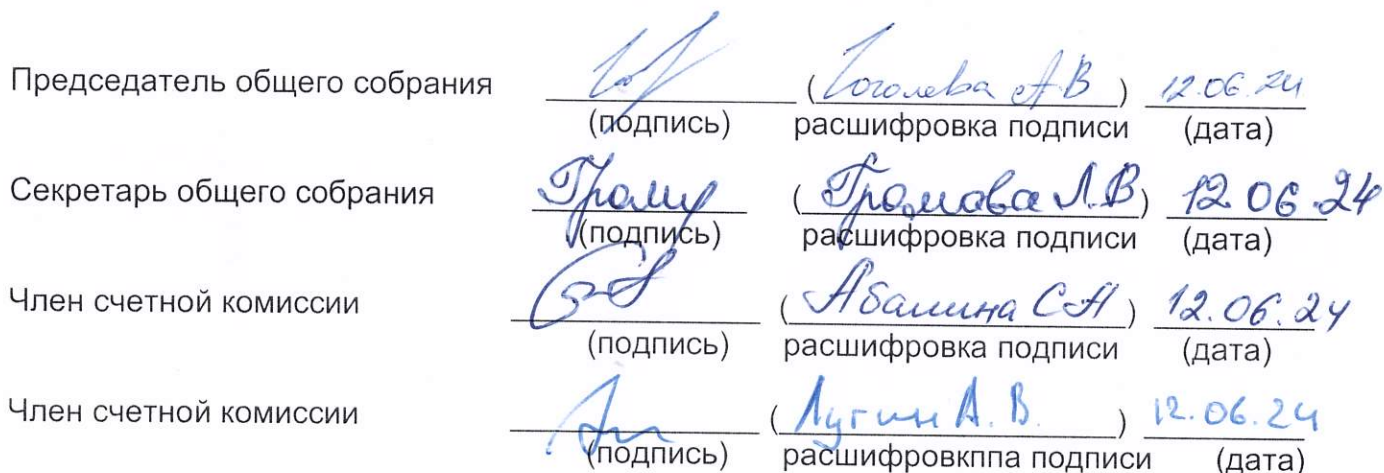 Председатель общего собрания (Гоголева А В) 12.06.24
(подпись) расшифровка подписи (дата)
Секретарь общего собрания (Громова Л.В) 12.06.24
(подпись) расшифровка подписи (дата)
Член счетной комиссии (Абалина С А) 12.06.24
(подпись) расшифровка подписи (дата)
Член счетной комиссии (Лугин А. В.) 12.06.24
(подпись) расшифровкппа подписи (дата)